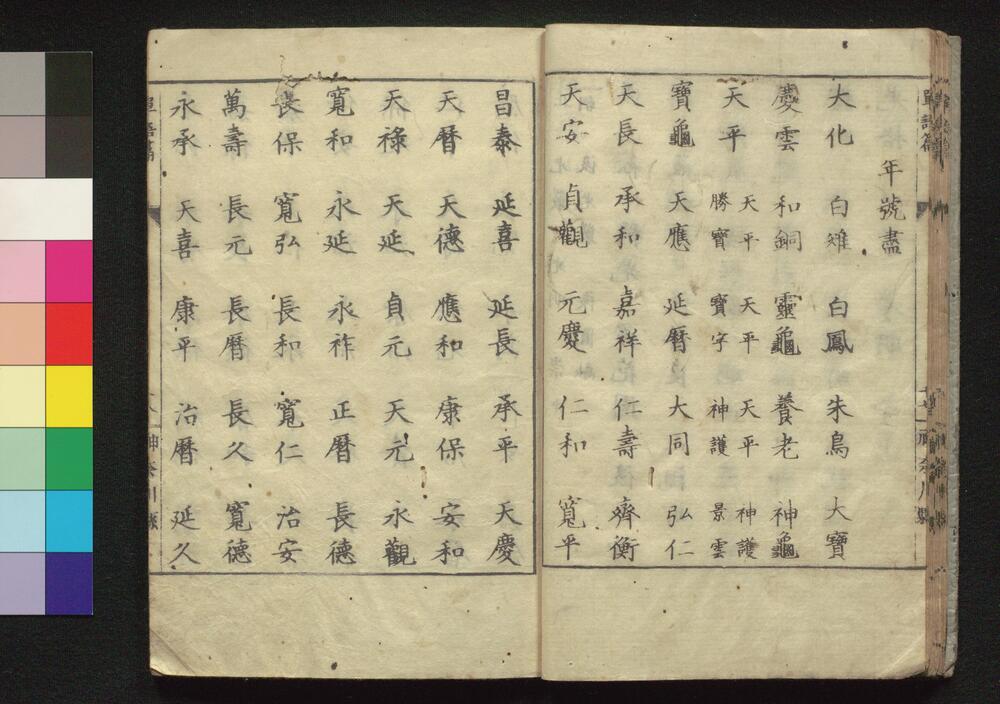 年號盡
大化 白雉 白鳳 朱鳥 大寶
慶雲 和銅 靈龜 養老 神龜
天平 天平勝寶 天平寶字 天平神護 神護景雲
寶龜 天應 延曆 大同 弘仁
天長 承和 嘉祥 仁壽 齊衡
天安 貞觀 元慶 仁和 寬平
昌泰 延喜 延長 承平 天慶
天曆 天德 應和 康保 安和
天祿 天延 貞元 天元 永觀
寬和 永延 永祚 正曆 長德
長保 寬弘 長和 寬仁 治安
萬壽 長元 長曆 長久 寬德
永承 天喜 康平 治曆 延久
單語篇
神奈川縣